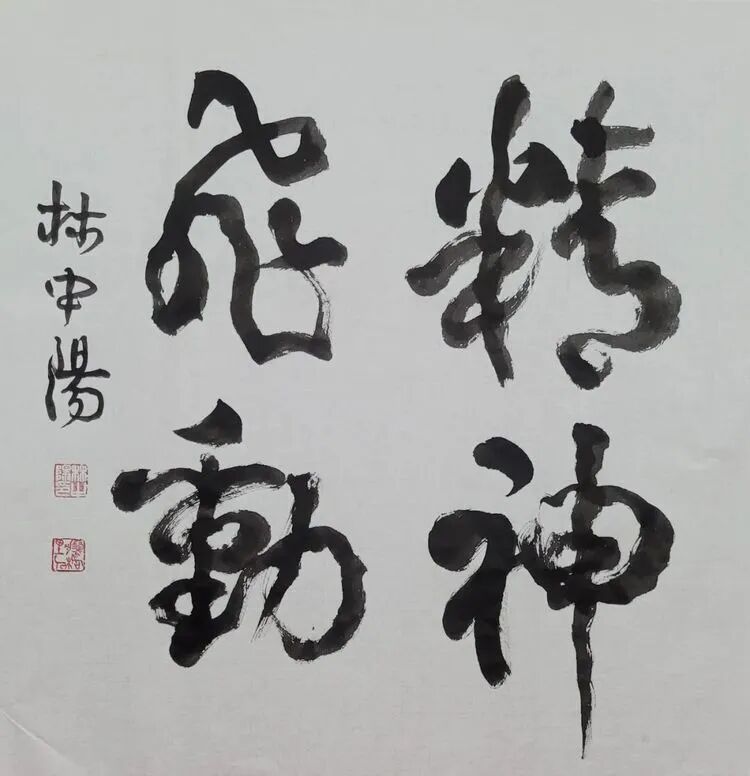 精神
飛動
林中陽